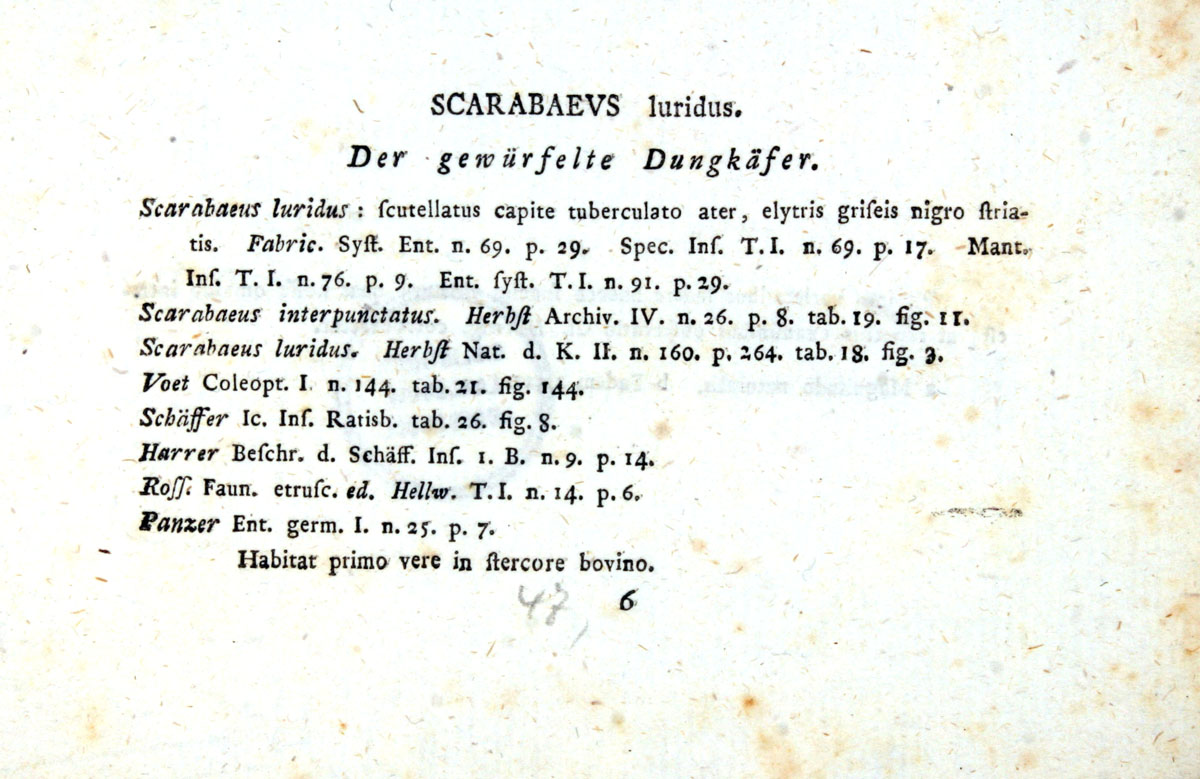 SCARABAEVS luridus.
Der gewürfelte Dungkäfer.
Scarabaeus luridus : ſcutellatus capite tuberculato ater, elytris griſeis nigro ſtria-
tis. Fabric. Syſt. Ent. n. 69. p. 29. Spec. Inſ. T. I. n. 69. p. 17. Mant.
Inſ. T. I. n. 76. p. 9. Ent. ſyſt. T. I. n. 91. p. 29.
Scarabaeus interpunctatus. Herbſt Archiv. IV. n. 26. p. 8. tab. 19. fig. 11.
Scarabaeus luridus. Herbſt Nat. d. K. II. n. 160. p. 264. tab. 18. fig. 3.
Voet Coleopt. I. n. 144. tab. 21. fig. 144.
Schäffer Ic. Inſ. Ratisb. tab. 26. fig. 8.
Harrer Beſchr. d. Schäff. Inſ. 1. B. n. 9. p. 14.
Roſſ. Faun. etruſc. ed. Hellw. T. I. n. 14. p. 6.
Panzer Ent. germ. I. n. 25. p. 7.
Habitat primo vere in ſtercore bovino.
47, 6